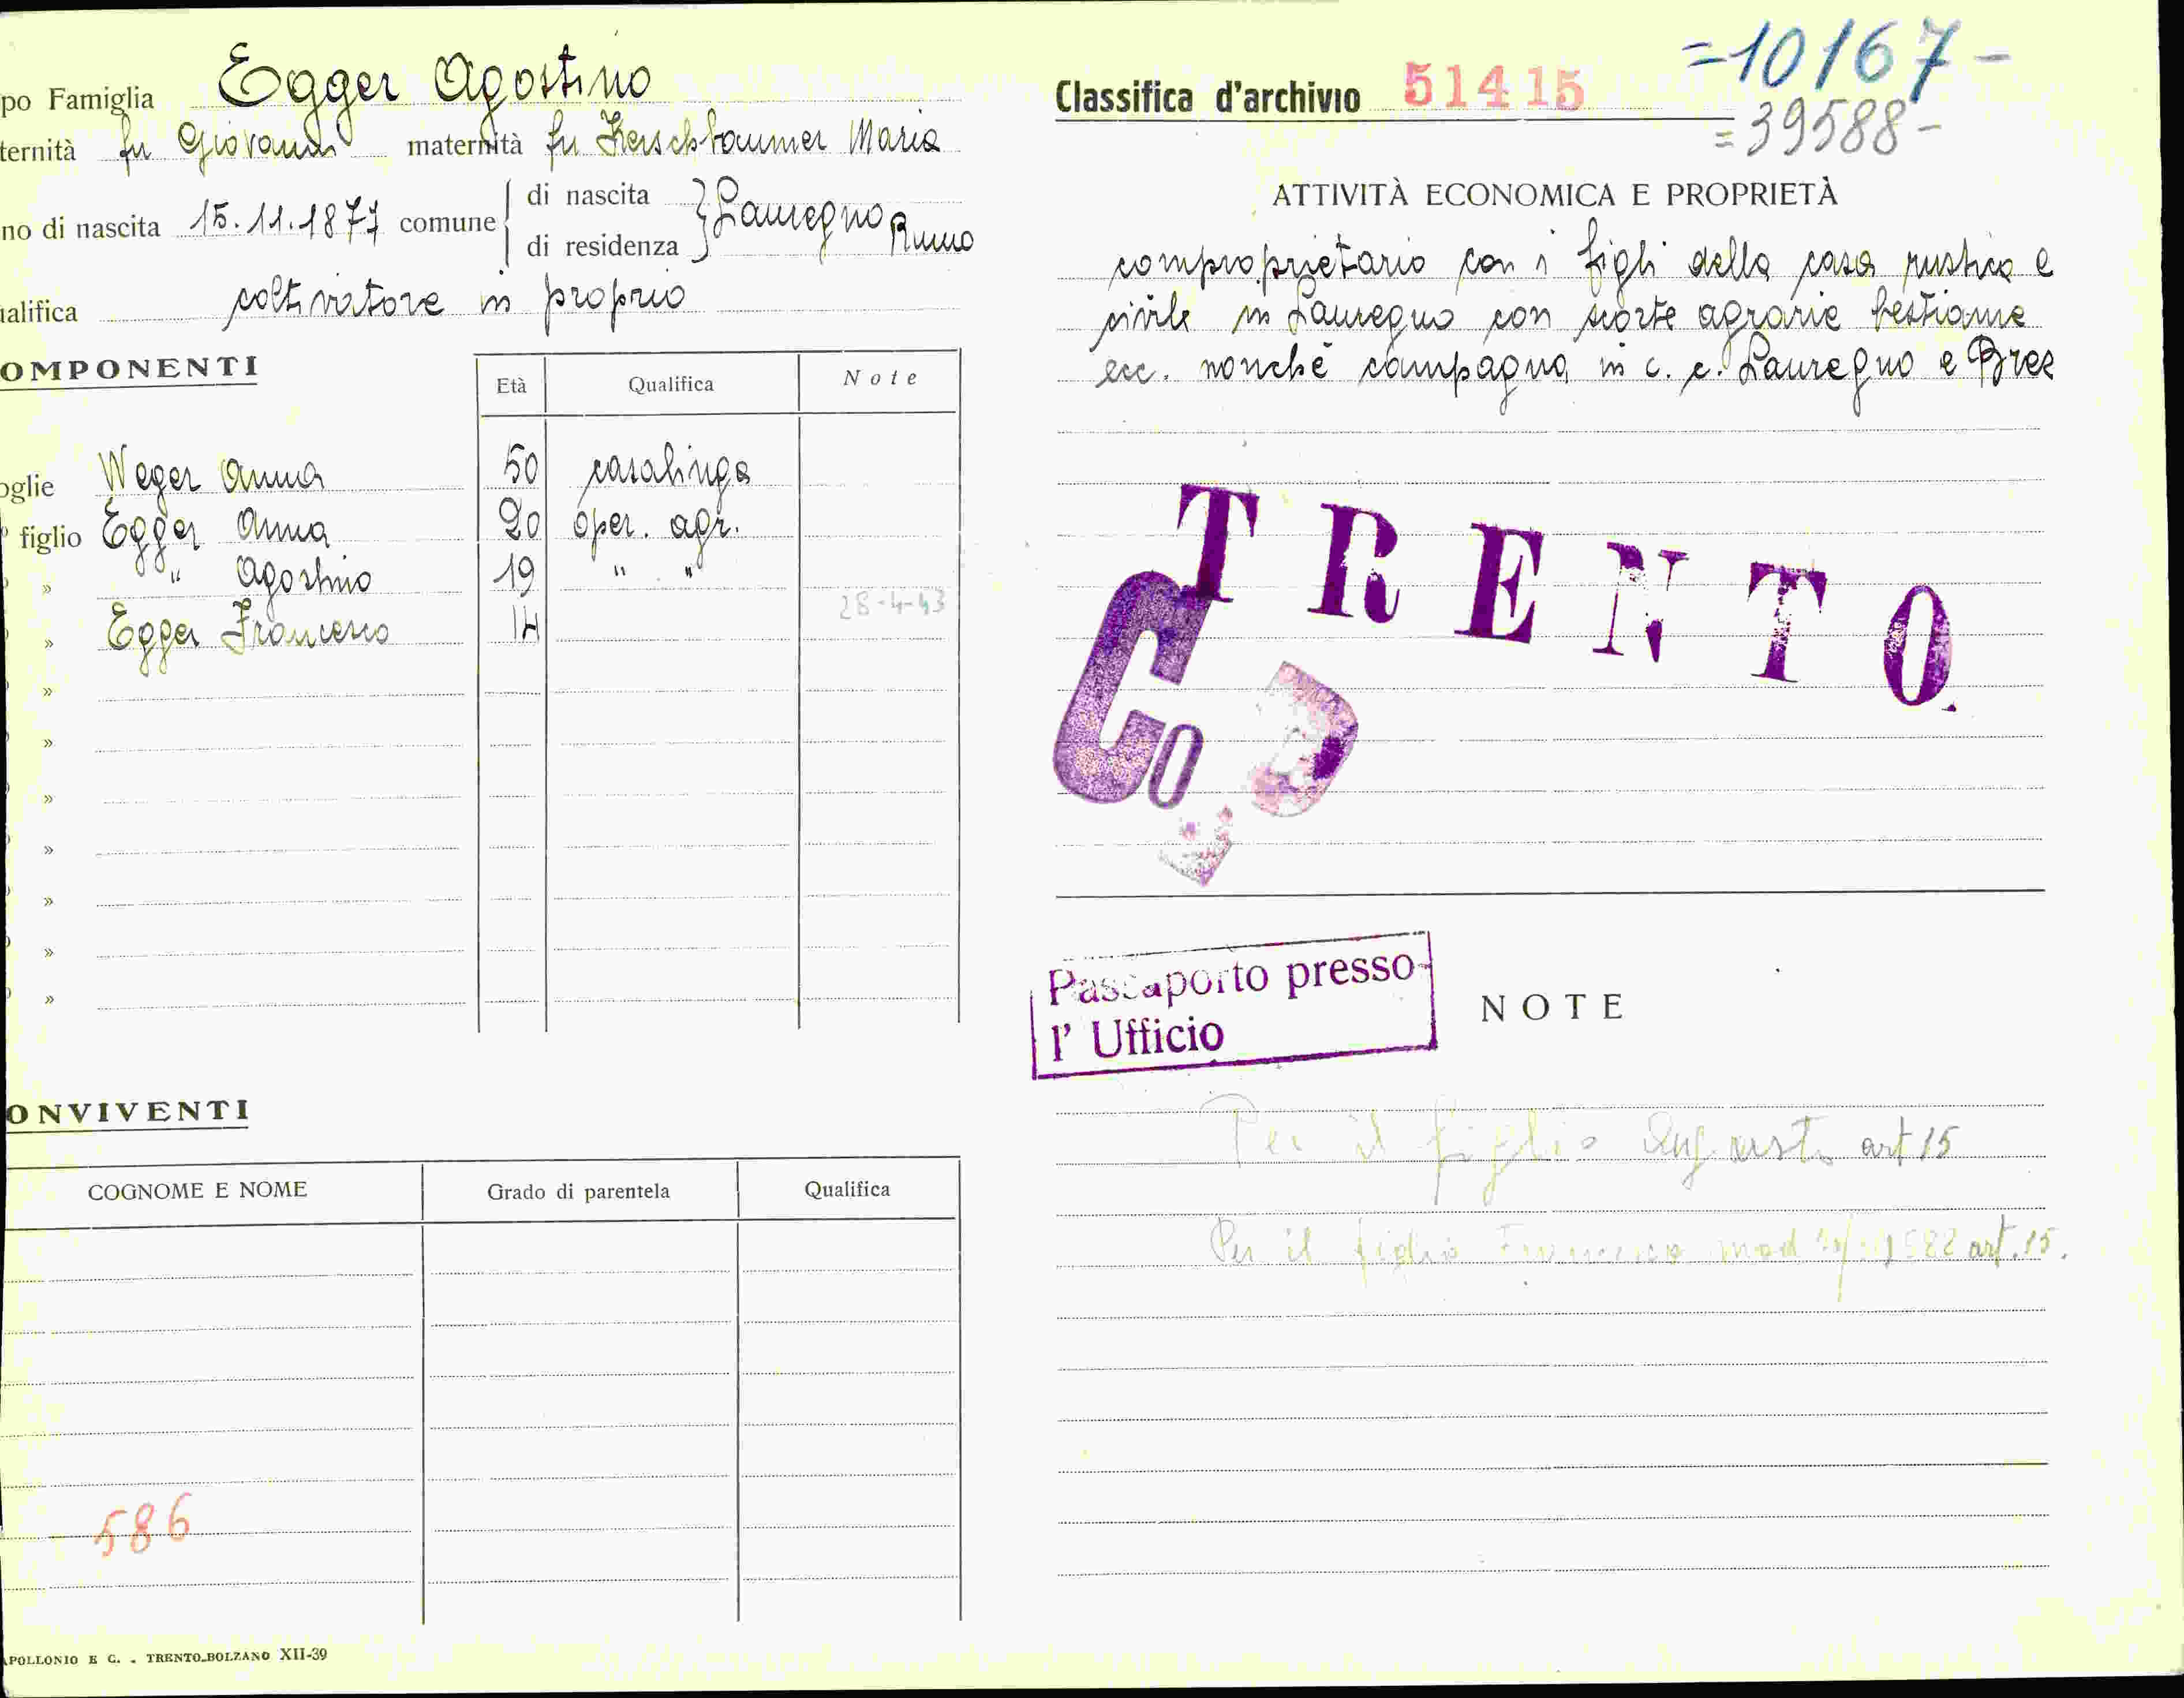 po Famiglia Egger Agostino
ternità fu Giovanni maternità fu Kerschbaumer Maria
no di nascita 15.11.1877 comune di nascita di residenza Lauregno Rumo
alifica coltivatore in proprio
OMPONENTI
Età Qualifica Note
oglie Weger Anna 50 casalinga
figlio Egger Anna 20 oper. agr.
» " Agostino 19 " "
28-4-43
» Egger Francesco 14
»
»
»
»
»
»
»
ONVIVENTI
COGNOME E NOME Grado di parentela Qualifica
586
APOLLONIO E C. - TRENTO-BOLZANO XII-39
=10167-
Classifica d'archivio 51415
=39588-
ATTIVITÀ ECONOMICA E PROPRIETÀ
comproprietario con i figli della casa rustica e
civile in Lauregno con scorte agrarie bestiame
ecc. nonchè campagna in c. c. Lauregno e Brez
TRENTO
Co
Passaporto presso
l' Ufficio
NOTE
Per il figlio August. art 15
Per il figlio Francesco mod art. 15.